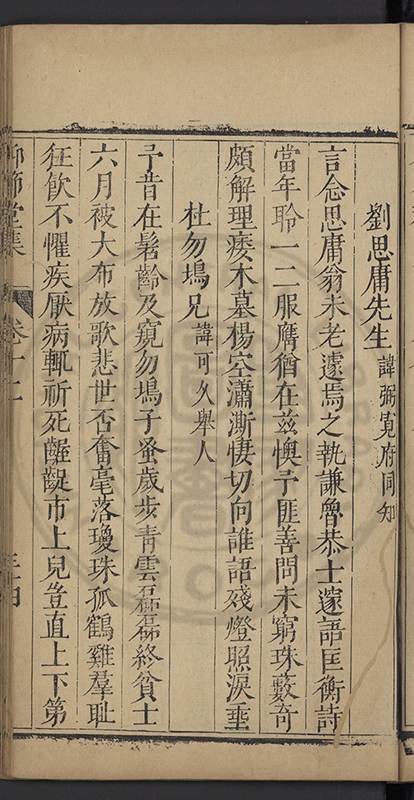 劉思庸先生諱弼寬府同知
言念思庸翁未老遽焉之執謙魯恭士邃語匡衡詩
當年聆一二服膺猶在玆懊予匪善問未窮珠藪奇
頗解理瘘木墓楊空瀟漸悽切向誰語殘燈照淚垂
杜勿塢兄諱可久舉人
予昔在髫齡及窺勿塢子蚤歲步青雲磊磊終貧士
六月被大布放歌悲世否奮毫落瓊珠孤鶴雞羣耻
狂飲不懼疾厭病輒祈死齷齪市上兒豈直上下第
節堂集 卷十二